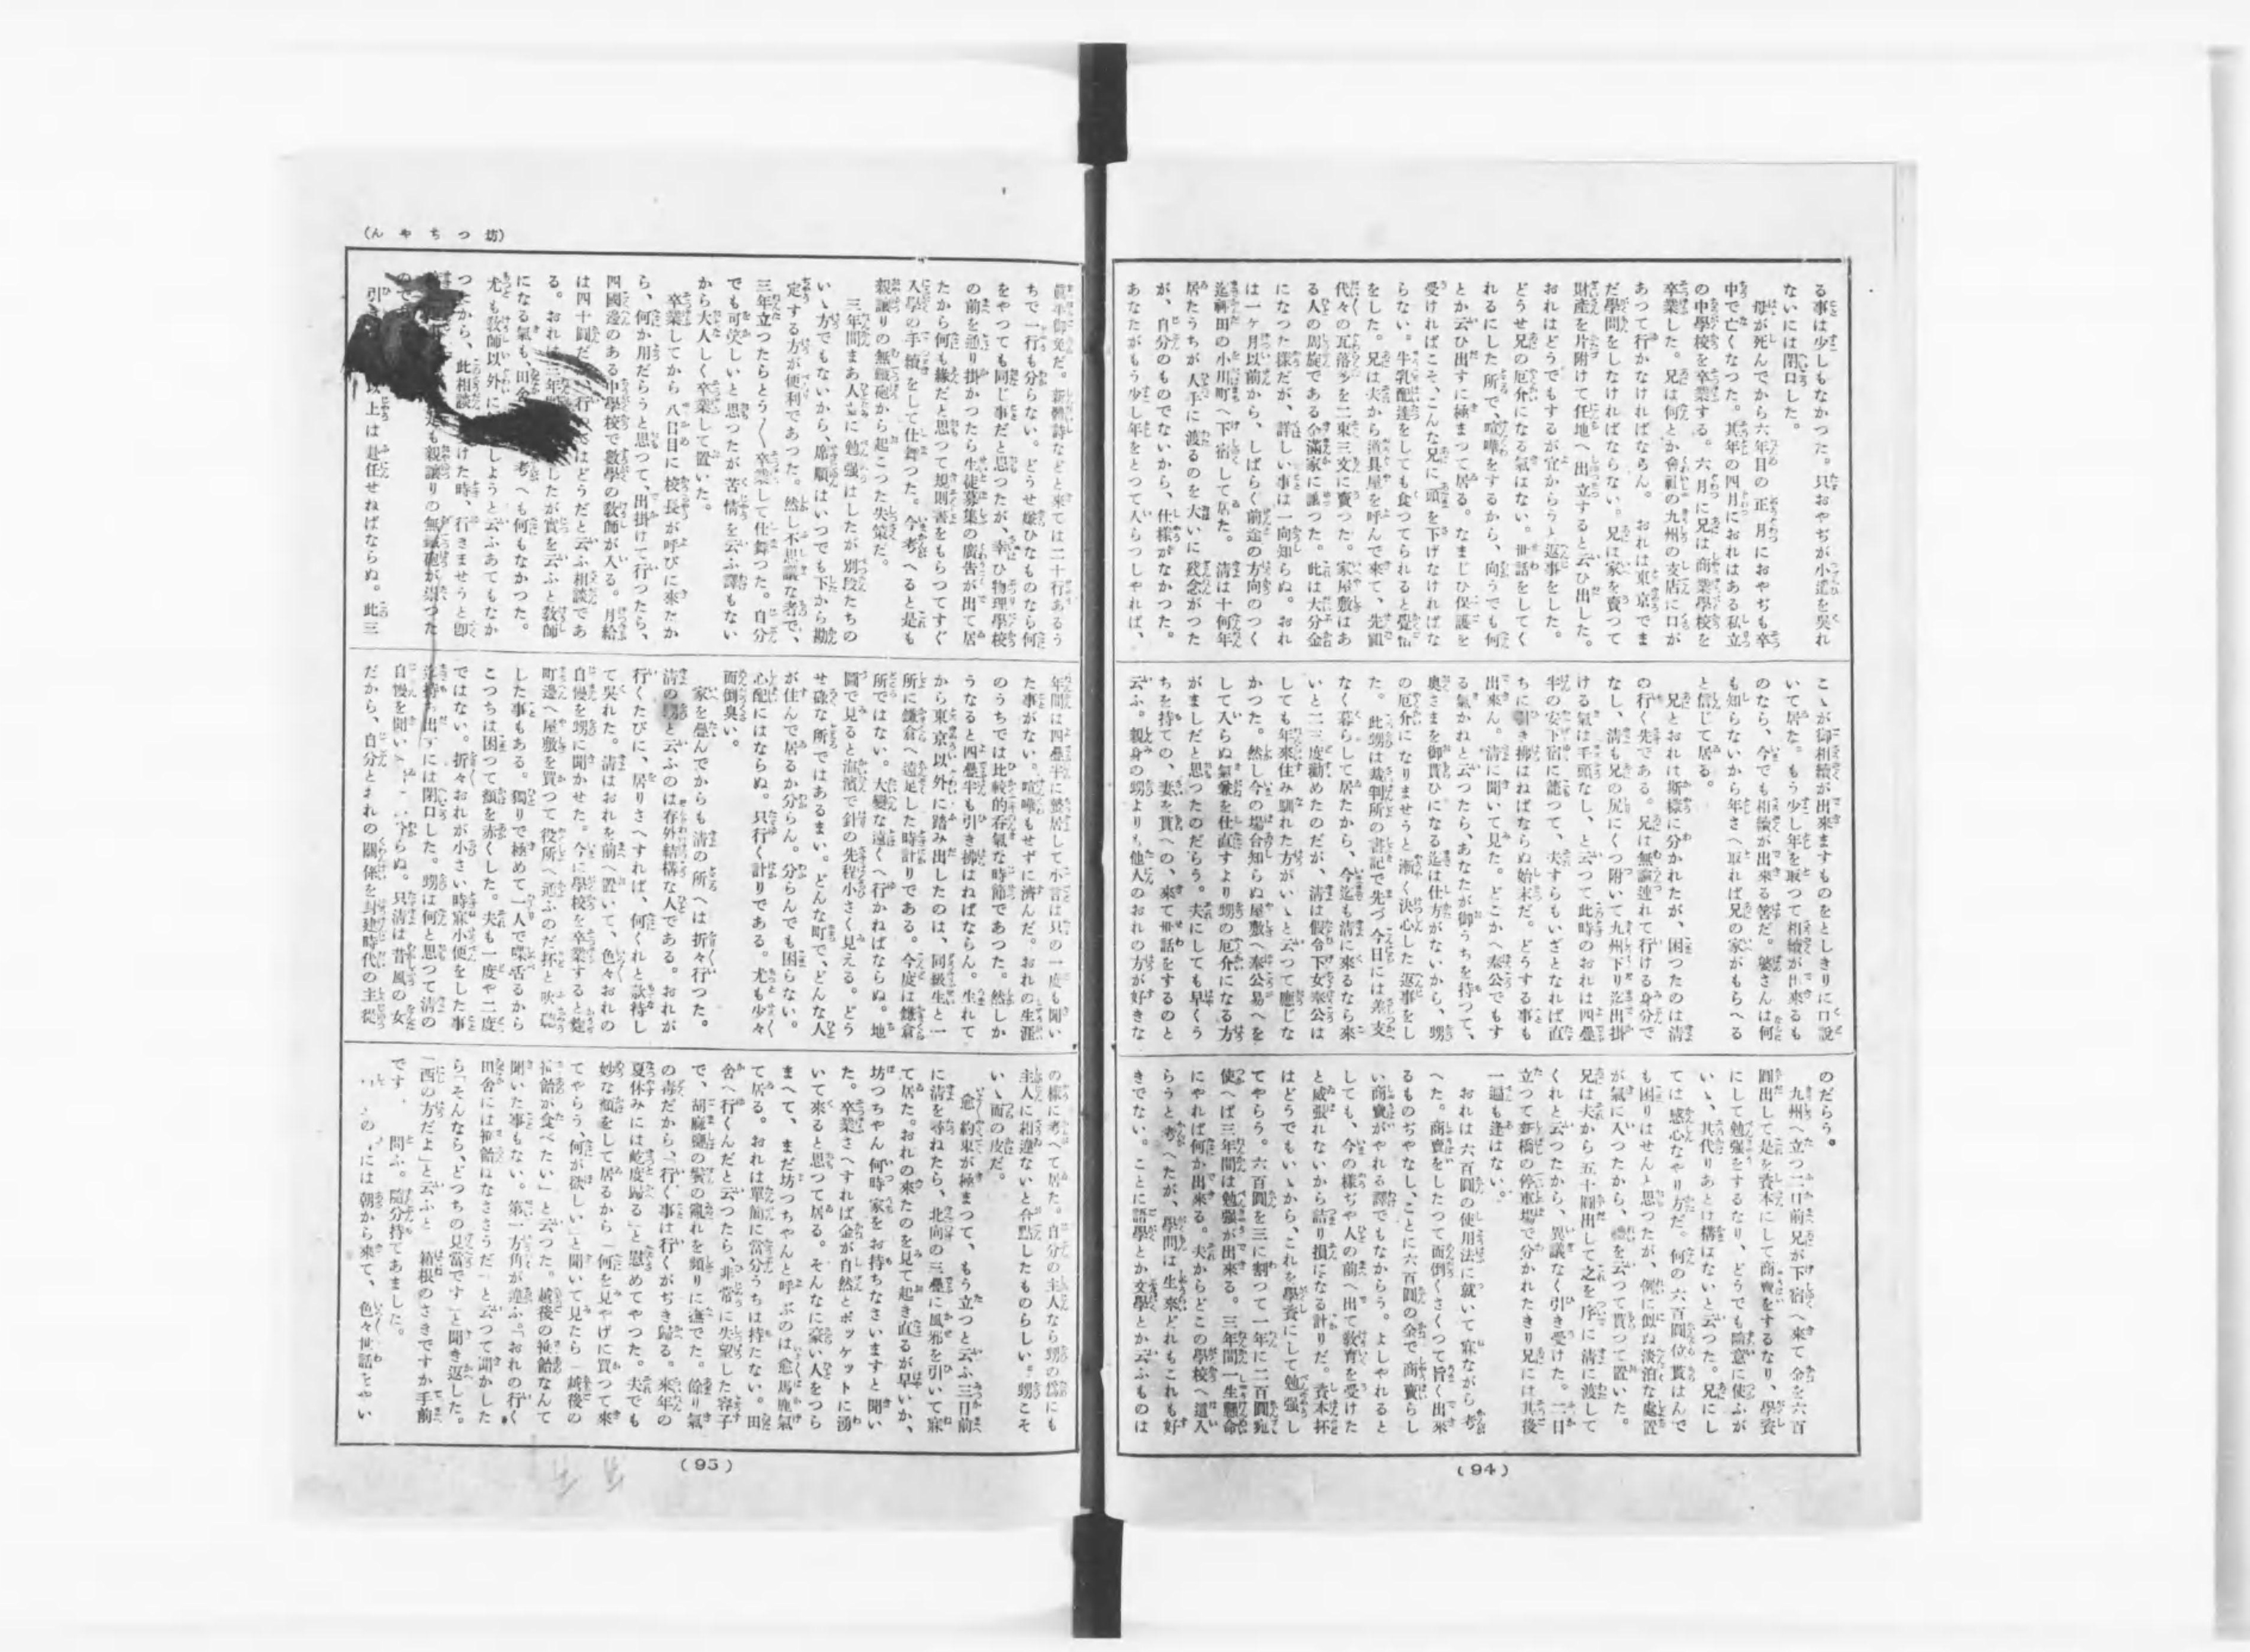 る事は少しもなかつた。只おやぢが小遣を呉れ
ないには閉口した。
母が死んでから六年目の正月におやぢも卒
中で亡くなつた。其年の四月におれはある私立
の中學校を卒業する。六月に兄は商業學校を
卒業した。兄は何とか會社の九州の支店に口が
あつて行かなければならん。おれは東京でま
だ學問をしなければならない。兄は家を賣つて
財產を片附けて任地へ出立すると云ひ出した。
おれはどうでもするが宜からうと返事をした。
どうせ兄の厄介になる氣はない。世話をしてく
れるにした所で、喧嘩をするから、向うでも何
とか云ひ出すに極まつて居る。なまじひ保護を
受ければこそ、こんな兄に頭を下げなければな
らない。牛乳配達をしても食つてられると覺悟
をした。兄は夫から道具屋を呼んで來て、先祖
代々の瓦落多を二束三文に賣つた。家屋敷はあ
る人の周旋である金滿家に讓つた。此は大分金
になつた樣だが、詳しい事は一向知らぬ。おれ
は一ヶ月以前から、しばらく前途の方向のつく
迄神田の小川町へ下宿して居た。清は十何年
居たうちが人手に渡るのを大いに殘念がつた
が、自分のものでないから、仕樣がなかつた。
あなたがもう少し年をとつて入らつしやれば、
こゝが御相續が出來ますものをとしきりに口說
いて居た。もう少し年を取つて相續が出來るも
のなら、今でも相續が出來る筈だ。婆さんは何
も知らないから年さへ取れば兄の家がもらへる
と信じて居る。
兄とおれは斯樣に分かれたが、困つたのは清
の行く先である。兄は無論連れて行ける身分で
なし、清も兄の尻にくつ附いて九州下り迄出掛
ける氣は毛頭なし、と云つて此時のおれは四疊
半の安下宿に籠つて、夫すらもいざとなれば直
ちに引き拂はねばならぬ始末だ。どうする事も
出來ん。清に聞いて見た。どこかへ奉公でもす
る氣かねと云つたら、あなたが御うちを持つて、
奧さまを御貰ひになる迄は仕方がないから、甥
の厄介になりませうと漸く決心した返事をし
た。此甥は裁判所の書記で先づ今日には差支
なく暮らして居たから、今迄も清に來るなら來
いと二三度勸めたのだが、清は假令下女奉公は
しても年來住み馴れた方がいゝと云つて應じな
かつた。然し今の場合知らぬ屋敷へ奉公易へを
して入らぬ氣兼を仕直すより甥の厄介になる方
がましだと思つたのだらう。夫にしても早くう
ちを持ての、妻を貰への、來て世話をするのと
云ふ。親身の甥よりも他人のおれの方が好きな
のだらう。
九州へ立つ二日前兄が下宿へ來て金を六百
圓出して是を資本にして商賣をするなり、學資
にして勉强をするなり、どうでも隨意に使ふが
いゝ、其代りあとは構はないと云つた。兄にし
ては感心なやり方だ。何の六百圓位貰はんで
も困りはせんと思つたが、例に似ぬ淡泊な處置
が氣に入つたから、禮を云つて貰つて置いた。
兄は夫から五十圓出して之を序に清に渡して
くれと云つたから、異議なく引き受けた。二日
立つて新橋の停車場で分かれたきり兄には其後
一遍も逢はない。
おれは六百圓の使用法に就いて寐ながら考
へた。商賣をしたつて面倒くさくつて旨く出來
るものぢやなし、ことに六百圓の金で商賣らし
い商賣がやれる譯でもなからう。よしやれると
しても、今の樣ぢや人の前へ出て敎育を受けた
と威張れないから詰り損になる計りだ。資本抔
はどうでもいゝから、これを學資にして勉强し
てやらう。六百圓を三に割つて一年に二百圓宛
使へば三年間は勉强が出來る。三年間一生懸命
にやれば何か出來る。夫からどこの學校へ這入
らうと考へたが、學問は生來どれもこれも好
きでない。ことに語學とか文學とか云ふものは
(94)
(坊つちやん)
眞平御免だ。新體詩などと來ては二十行あるう
ちで一行も分らない。どうせ嫌ひなものなら何
をやつても同じ事だと思つたが、幸ひ物理學校
の前を通り掛かつたら生徒募集の廣告が出て居
たから何も緣だと思つて規則書をもらつてすぐ
入學の手續をして仕舞つた。今考へると是も
親讓りの無鐵砲から起こつた失策だ。
三年間まあ人並に勉强はしたが別段たちの
いゝ方でもないから、席順はいつでも下から勘
定する方が便利であつた。然し不思議な者で、
三年立つたらとう〱卒業して仕舞つた。自分
でも可笑しいと思つたが苦情を云ふ譯もない
から大人しく卒業して置いた。
卒業してから八日目に校長が呼びに來たか
ら、何か用だらうと思つて、出掛けて行つたら、
四國邊のある中學校で數學の敎師が入る。月給
は四十圓だ行つてはどうだと云ふ相談であ
る。おれは三年したが實を云ふと敎師
になる氣も、田舍考へも何もなかつた。
尤も敎師以外にしようと云ふあてもなか
つたから、此相談けた時、行きませうと卽
是も親讓りの無鐵砲が祟つた
ので
引以上は赴任せねばならぬ。此三
年間は四疊半に蟄居して小言は只の一度も聞い
た事がない。喧嘩もせずに濟んだ。おれの生涯
のうちでは比較的呑氣な時節であつた。然しか
うなると四疊半も引き拂はねばならん。生れて
から東京以外に踏み出したのは、同級生と一
所に鎌倉へ遠足した時計りである。今度は鎌倉
所ではない。大變な遠くへ行かねばならぬ。地
圖で見ると海濱で針の先程小さく見える。どう
せ碌な所ではあるまい。どんな町で、どんな人
が住んで居るか分らん。分らんでも困らない。
心配にはならぬ。只行く計りである。尤も少々
面倒臭い。
家を疊んでからも清の所へは折々行つた。
清の甥と云ふのは存外結構な人である。おれが
行くたびに、居りさへすれば、何くれと款待し
て呉れた。清はおれを前へ置いて、色々おれの
自慢を甥に聞かせた。今に學校を卒業すると麴
町邊へ屋敷を買つて役所へ通ふのだ抔と吹聽
した事もある。獨りで極めて一人で喋舌るから
こつちは困つて顏を赤くした。夫も一度や二度
ではない。折々おれが小さい時寐小便をした事
迄持ち出すには閉口した。甥は何と思つて清の
自慢を聞いて分らぬ。只清は昔風の女
だから、自分とおれの關係を封建時代の主從
の樣に考へて居た。自分の主人なら甥の爲にも
主人に相違ないと合點したものらしい。甥こそ
いゝ面の皮だ。
愈約束が極まつて、もう立つと云ふ三日前
に清を尋ねたら、北向の三疊に風邪を引いて寐
て居た。おれの來たのを見て起き直るが早いか、
坊つちやん何時家をお持ちなさいますと聞い
た。卒業さへすれば金が自然とポッケットに湧
いて來ると思つて居る。そんなに豪い人をつら
まへて、まだ坊つちやんと呼ぶのは愈馬鹿氣
て居る。おれは單簡に當分うちは持たない。田
舍へ行くんだと云つたら、非常に失望した容子
で、胡麻鹽の鬢の亂れを頻りに撫でた。餘り氣
の毒だから「行く事は行くがぢき歸る。來年の
夏休みには屹度歸る」と慰めてやつた。夫でも
妙な顏をして居るから「何を見やげに買つて來
てやらう、何が欲しい」と聞いて見たら「越後の
笹飴が食べたい」と云つた。越後の笹飴なんて
聞いた事もない。第一方角が違ふ。「おれの行く
田舍には笹飴はなささうだ」と云つて聞かした
ら「そんなら、どつちの見當です」と聞き返した。
「西の方だよ」と云ふと「箱根のさきですか手前
です」問ふ。隨分持てあました。
のには朝から來て、色々世話をやい
(95)